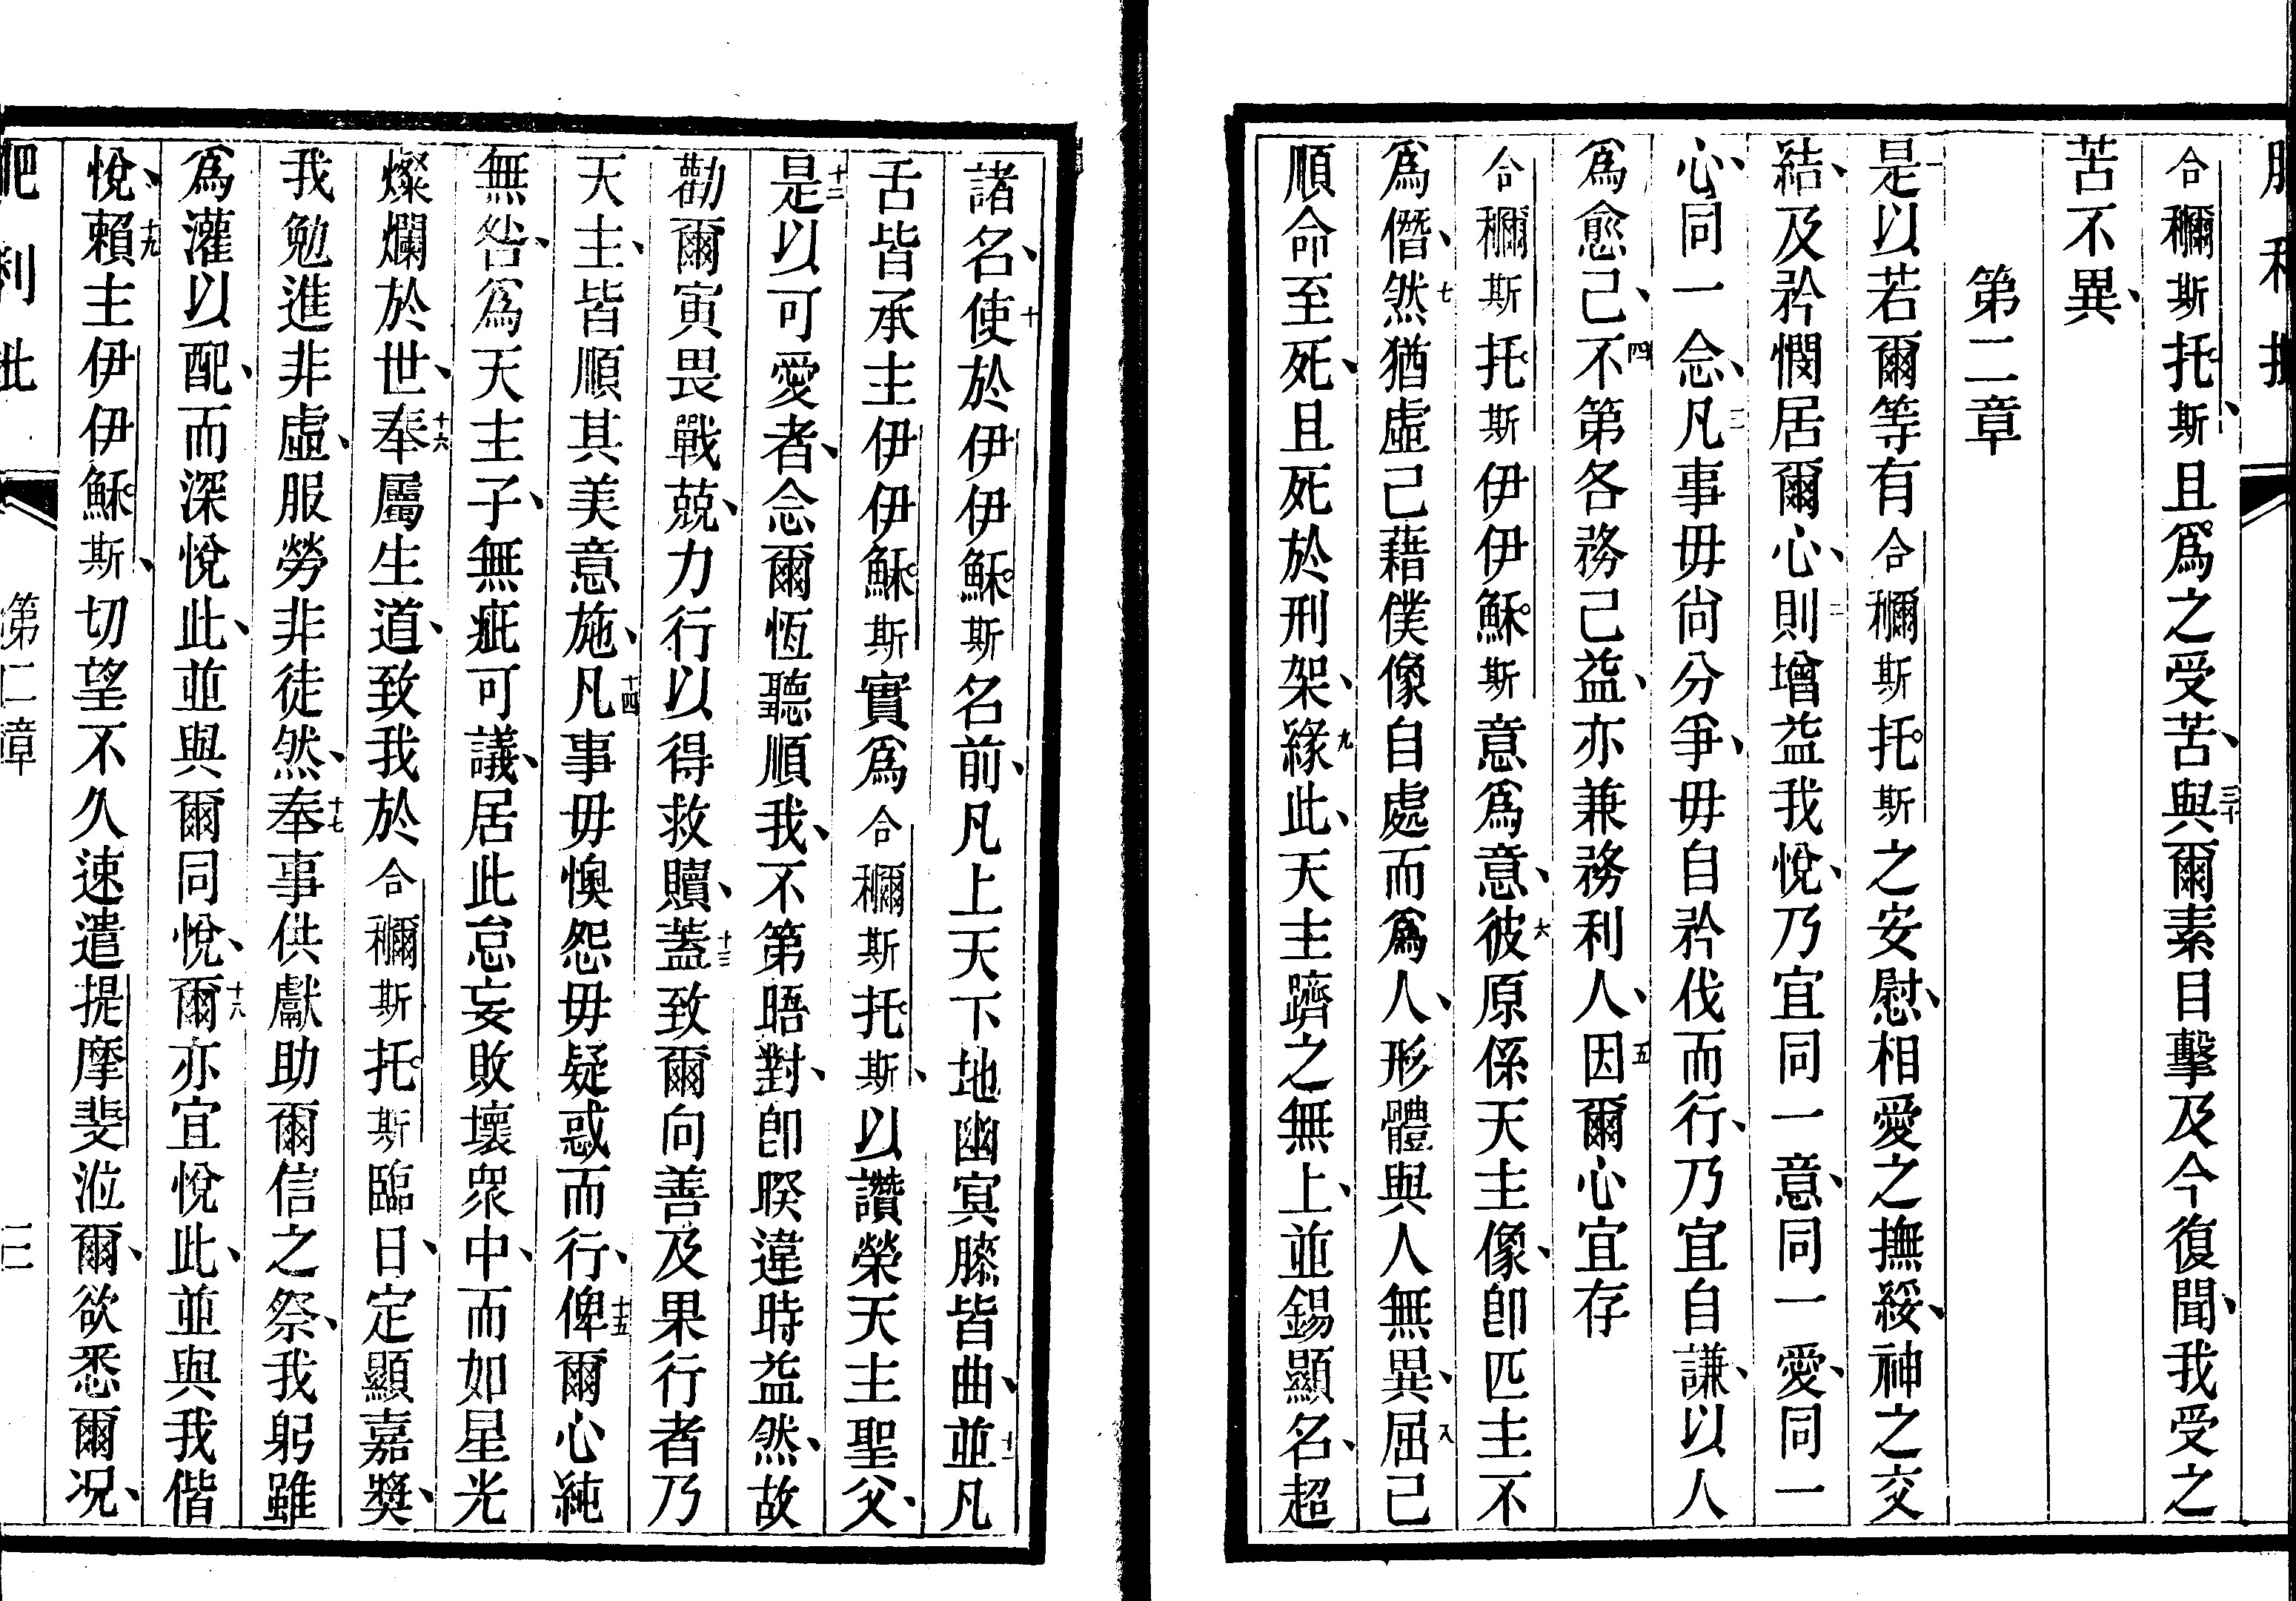 合穪斯托斯、且爲之受苦、三十與爾素目擊及今復聞、我受之
苦不異、
第二章
一是以若爾等有合穪斯托斯之安慰、相愛之撫綏、神之交
結、及矜憫居爾心、二則增益我悅、乃宜同一意、同一愛、同一
心、同一念、三凡事毋尙分爭、毋自矜伐而行、乃宜自謙、以人
爲愈己、四不第各務己益、亦兼務利人、五因爾心宜存
合穪斯托斯伊伊穌斯意爲意、六彼原係天主像、卽匹主不
爲僭、七然猶虛己藉僕像自處而爲人、形體與人無異、八屈己
順命至死、且死於刑架、九緣此、天主躋之無上、並錫顯名、超
諸名、十使於伊伊穌斯名前、凡上天下地幽冥膝皆曲、十一並凡
舌皆承主伊伊穌斯實爲合穪斯托斯、以讚榮天主聖父、
十二是以可愛者、念爾恆聽順我、不第晤對、卽暌違時益然、故
勸爾寅畏戰兢、力行以得救贖、十三蓋致爾向善及果行者乃
天主、皆順其美意施、十四凡事毋懊怨毋疑惑而行、十五俾爾心純
無咎、爲天主子、無疵可議、居此怠妄敗壞眾中、而如星光
燦爛於世、十六奉屬生道、致我於合穪斯托斯臨日、定顯嘉獎、
我勉進非虛、服勞非徒然、十七奉事供獻助爾信之祭、我躬雖
爲灌以配、而深悅此、並與爾同悅、十八爾亦宜悅此、並與我偕
悅、十九賴主伊伊穌斯、切望不久速遣提摩斐涖爾、欲悉爾况、
第二章
二